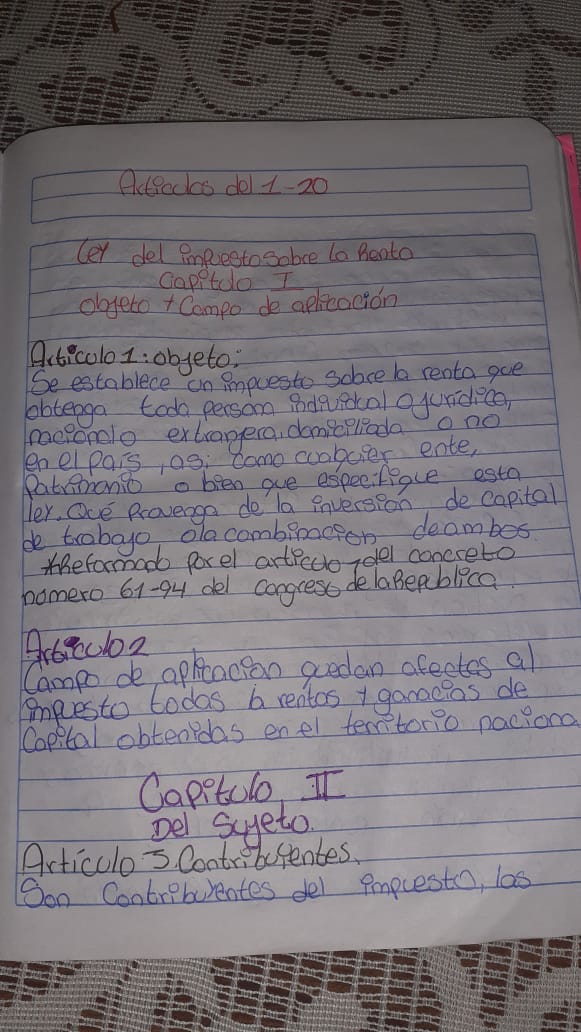 Articulos del 1-20
Ley del impuesto sobre la Renta
Capitulo I
objeto y Campo de aplicación
Articulo 1: objeto:
Se establece un impuesto sobre la renta que
obtenga toda persona individual o juridica,
nacional o extranjera, domiciliada o no
en el pais, asi como cualquier ente,
Patrimonio o bien que especifique esta
ley. Que Provenga de la inversion de capital
de trabajo o la combinacion de ambos.
*Reformado por el articulo 1 del concreto
nomero 61-94 del Congreso de la Republica.
Articulo 2
Campo de aplicacion quedan afectas al
impuesto todas la rentas y ganacias de
Capital obtenidas en el territorio naciona
Capitulo II
Del Sujeto.
Artículo 3 Contribuyentes.
Son Contribuyentes del impuesto, las